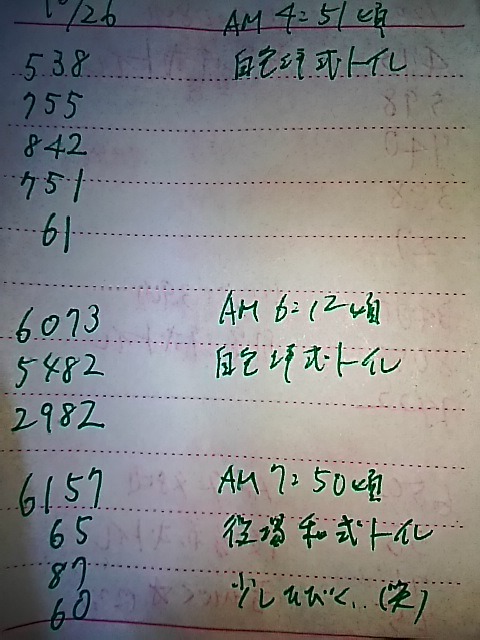 10/26 AM 4:51頃
538 自宅洋式トイレ
755
842
751
61
6073 AM 6:12頃
5482 自宅洋式トイレ
2982
6157 AM 7:50頃
65 役場和式トイレ
87
60 少しひびく、、(笑)